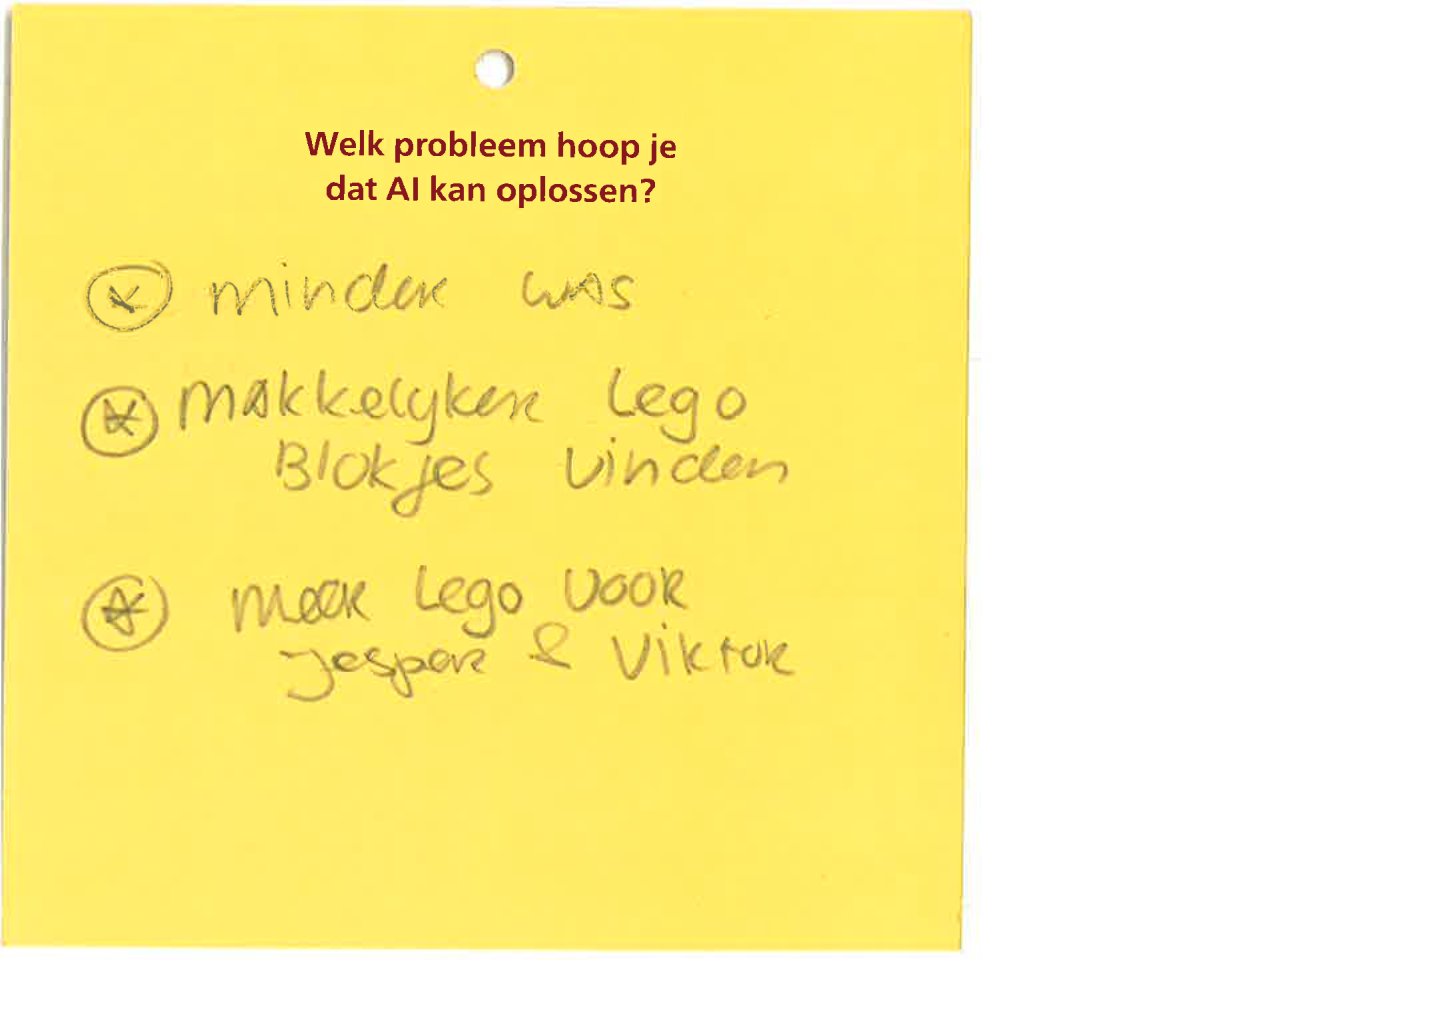 Welk probleem hoop je
dat AI kan oplossen?
minder was
makkelyker Lego
Blokjes vinden
meer Lego voor
Jesper & Viktor